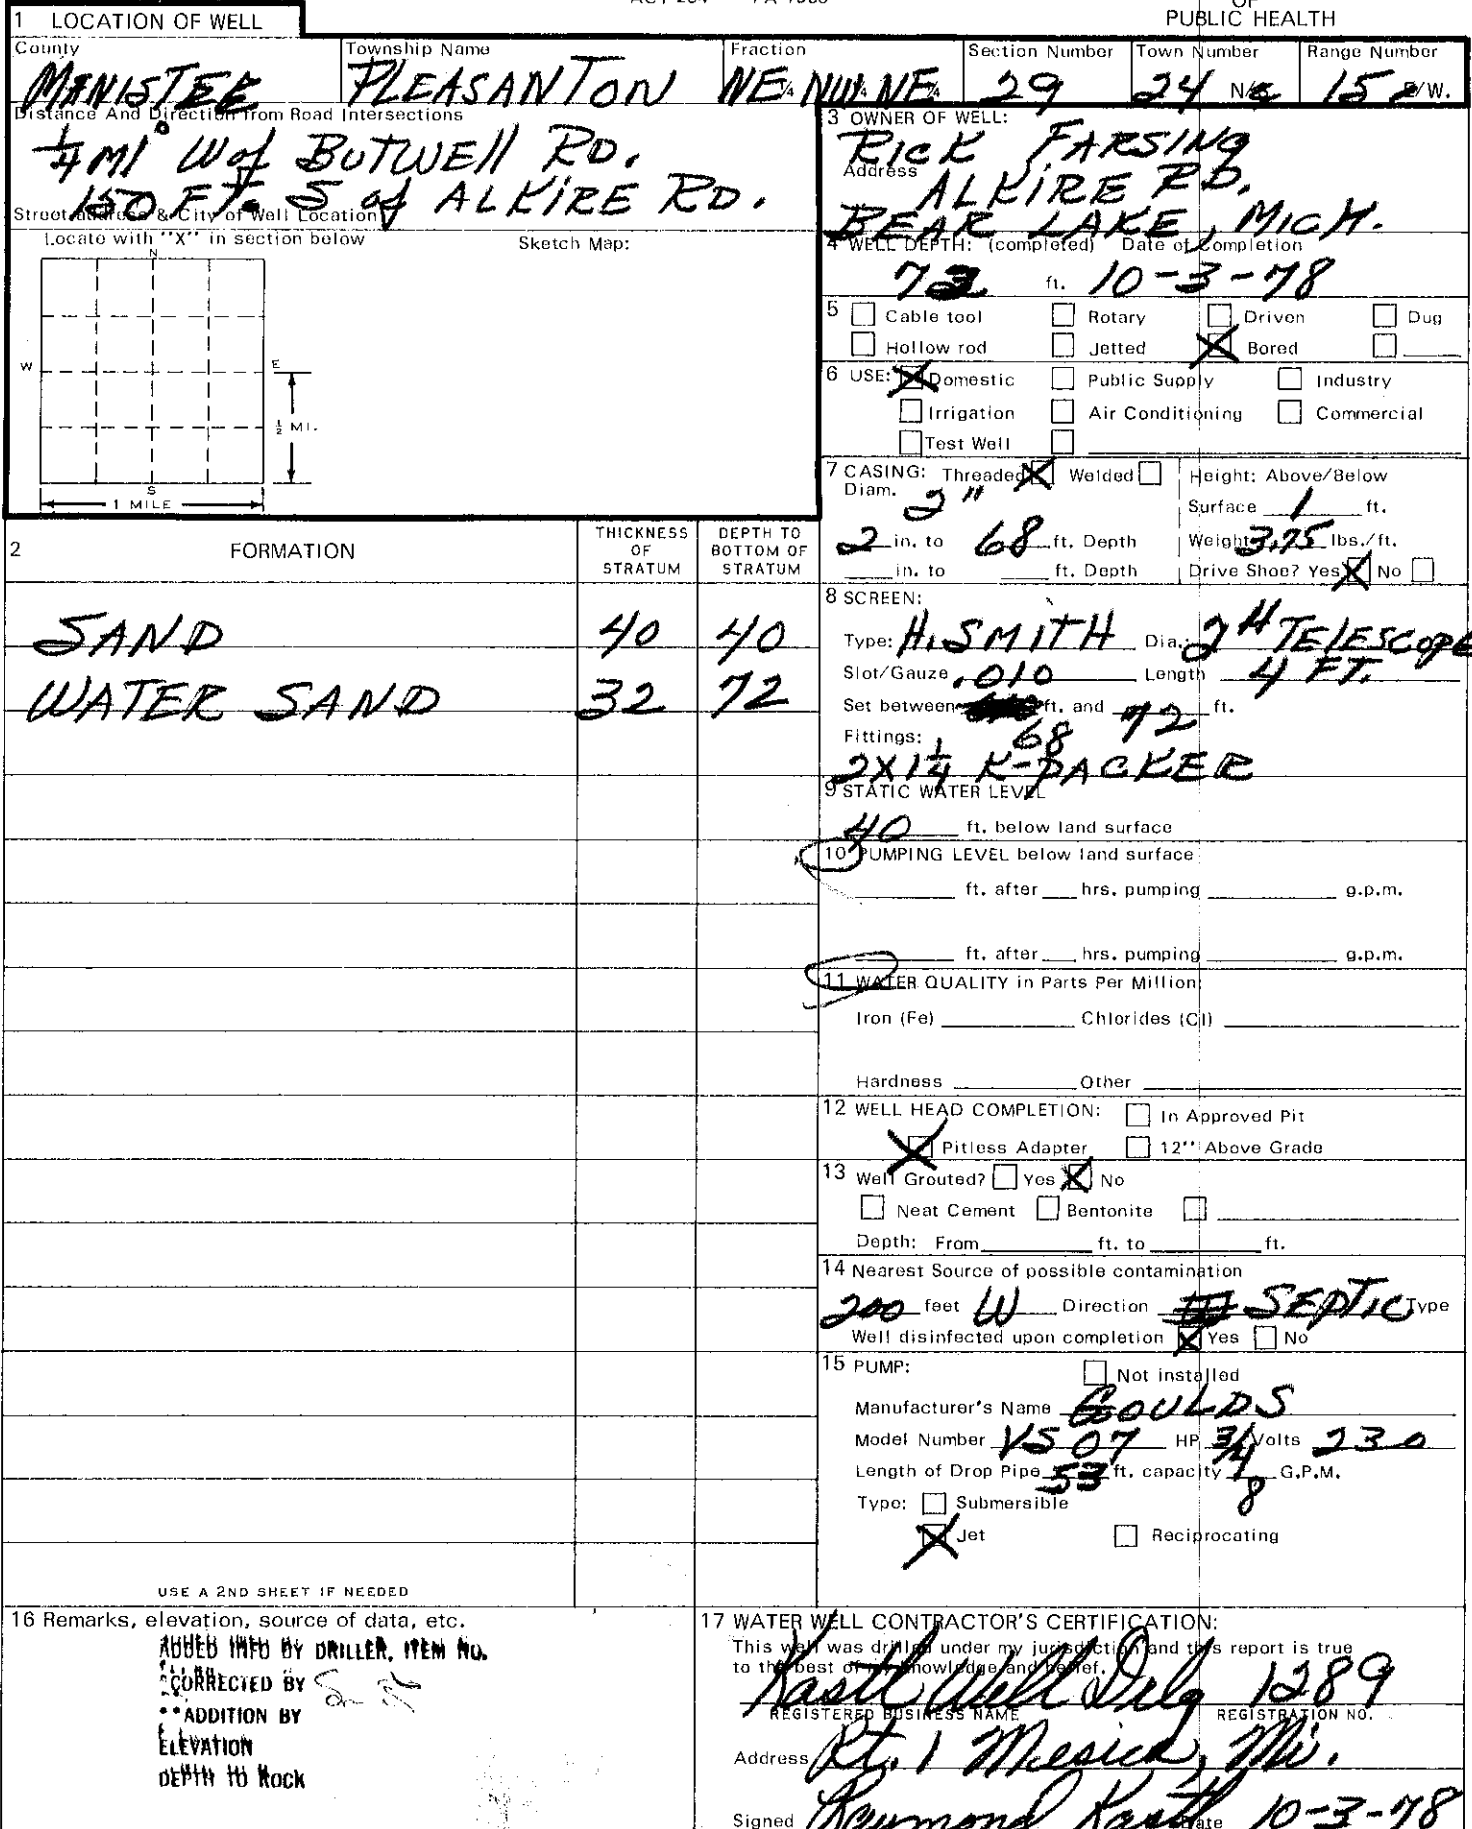 OF
PUBLIC HEALTH
1 LOCATION OF WELL
County Township Name Fraction Section Number Town Number Range Number
MANISTEE PLEASANTON NE¼ NW¼ NE¼ 29 24 N/S 15 E/W.
Distance And Direction from Road Intersections
¼ MI W of BUTWELL RD.
150 FT. S of ALKIRE RD.
Street address & City of Well Location
Locate with "X" in section below Sketch Map:
N
W E
½ MI.
S
1 MILE
3 OWNER OF WELL:
RICK FARSING
Address ALKIRE RD.
BEAR LAKE, MICH.
4 WELL DEPTH: (completed) Date of Completion
72 ft. 10-3-78
5 Cable tool Rotary Driven Dug
Hollow rod Jetted X Bored
6 USE: X Domestic Public Supply Industry
Irrigation Air Conditioning Commercial
Test Well
7 CASING: Threaded X Welded Height: Above/Below
Diam. 2" Surface 1 ft.
2 in. to 68 ft. Depth Weight 3.75 lbs./ft.
in. to ft. Depth Drive Shoe? Yes X No
2 FORMATION THICKNESS OF STRATUM DEPTH TO BOTTOM OF STRATUM
SAND 40 40
WATER SAND 32 72
8 SCREEN:
Type: H. SMITH Dia.: 2" TELESCOPE
Slot/Gauze .010 Length 4 FT.
Set between ft. and 72 ft.
Fittings: 68
2X1¼ K-PACKER
9 STATIC WATER LEVEL
40 ft. below land surface
10 PUMPING LEVEL below land surface
ft. after hrs. pumping g.p.m.
ft. after hrs. pumping g.p.m.
11 WATER QUALITY in Parts Per Million
Iron (Fe) Chlorides (Cl)
Hardness Other
12 WELL HEAD COMPLETION: In Approved Pit
X Pitless Adapter 12" Above Grade
13 Well Grouted? Yes X No
Neat Cement Bentonite
Depth: From ft. to ft.
14 Nearest Source of possible contamination
200 feet W Direction SEPTIC Type
Well disinfected upon completion X Yes No
15 PUMP: Not installed
Manufacturer's Name GOULDS
Model Number VS 07 HP 3/4 Volts 230
Length of Drop Pipe 53 ft. capacity 8 G.P.M.
Type: Submersible
X Jet Reciprocating
USE A 2ND SHEET IF NEEDED
16 Remarks, elevation, source of data, etc.
ADDED INFO BY DRILLER, ITEM NO.
*CORRECTED BY
**ADDITION BY
ELEVATION
DEPTH TO ROCK
17 WATER WELL CONTRACTOR'S CERTIFICATION:
This well was drilled under my jurisdiction and this report is true
to the best of my knowledge and belief.
Kastl Well Drlg 1289
REGISTERED BUSINESS NAME REGISTRATION NO.
Address Rt. 1 Mesick, Mi.
Signed Raymond Kastl Date 10-3-78